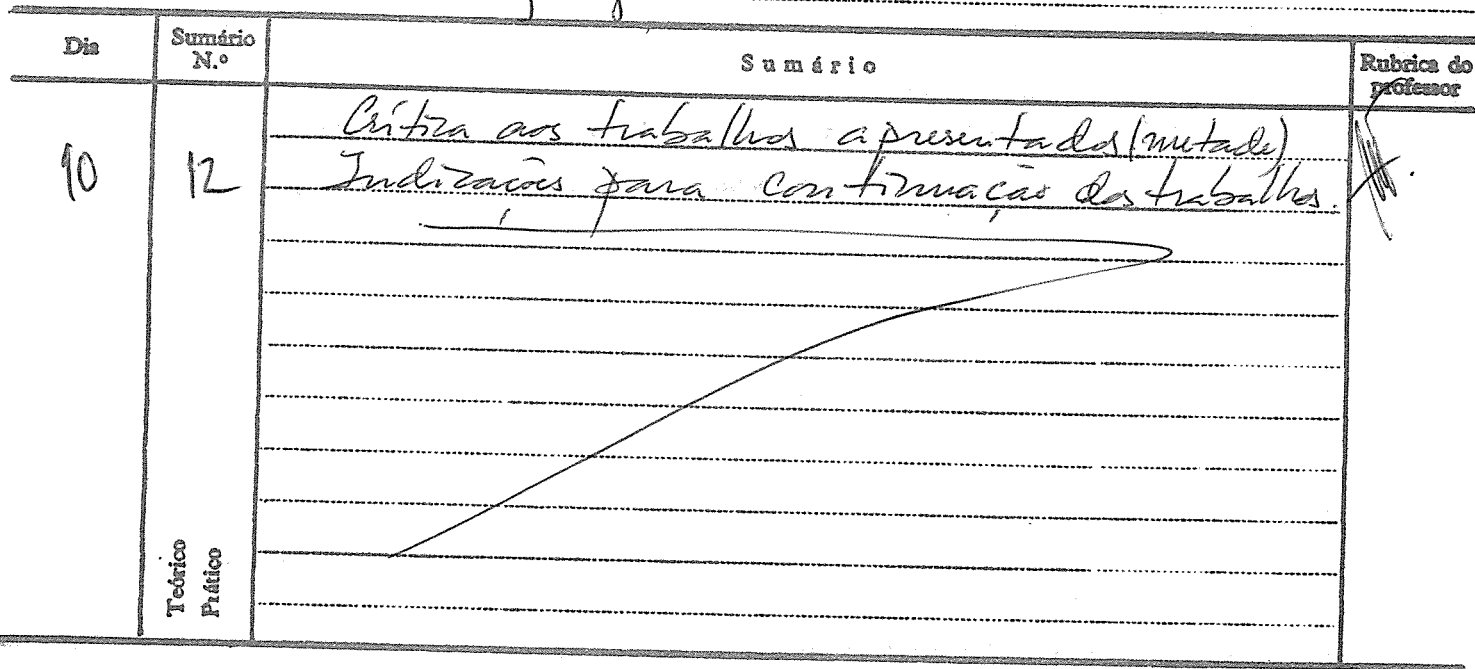 Dia
Sumário N.º
Sumário
Rubrica do professor
10
12
Crítica aos trabalhos apresentados (metade)
Indicações para continuação dos trabalhos.
Teórico
Prático